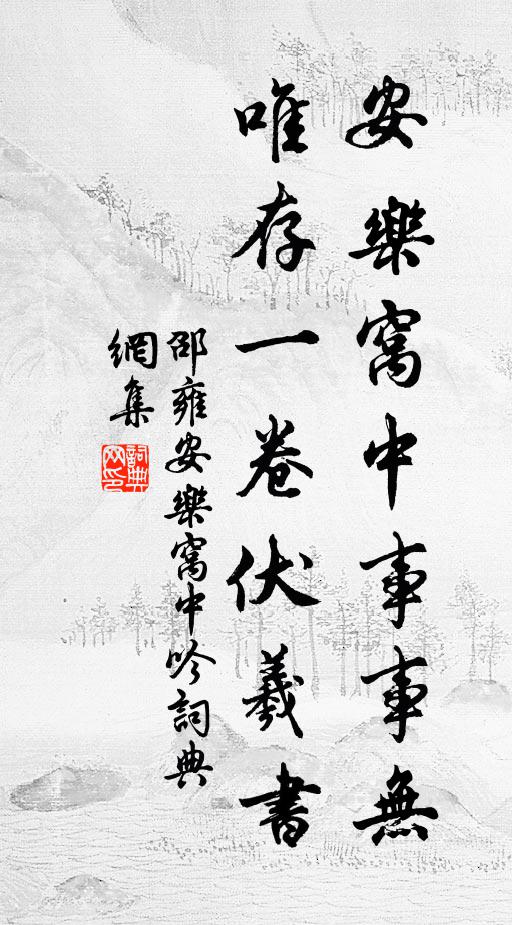 安樂窩中事事無
唯存一卷伏羲書
邵雍安樂窩中吟詞典
網集
詞典網印